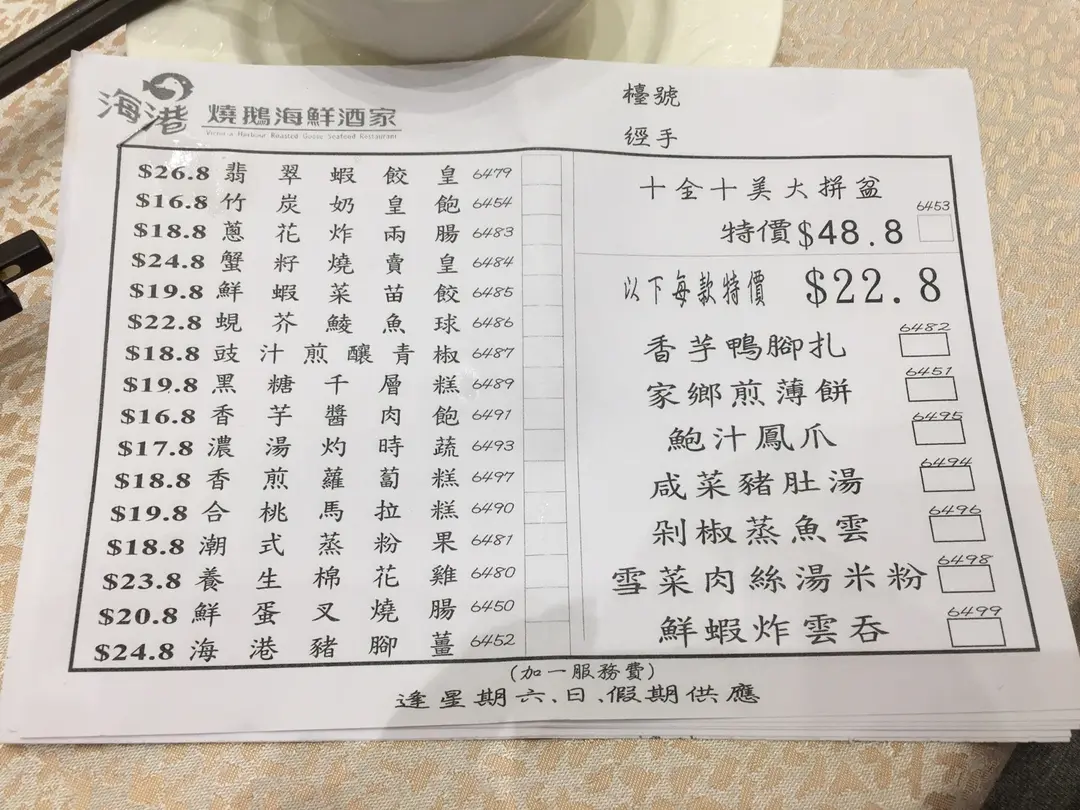 海港 燒鵝海鮮酒家
Victoria Harbour Roasted Goose Seafood Restaurant
檯號
經手
$26.8 翡翠蝦餃皇 6479
$16.8 竹炭奶皇飽 6454
$18.8 蔥花炸兩腸 6483
$24.8 蟹籽燒賣皇 6484
$19.8 鮮蝦菜苗餃 6485
$22.8 蜆芥鯪魚球 6486
$18.8 豉汁煎釀青椒 6487
$19.8 黑糖千層糕 6489
$16.8 香芋醬肉飽 6491
$17.8 濃湯灼時蔬 6493
$18.8 香煎蘿蔔糕 6497
$19.8 合桃馬拉糕 6490
$18.8 潮式蒸粉果 6481
$23.8 養生棉花雞 6480
$20.8 鮮蛋叉燒腸 6450
$24.8 海港豬腳薑 6452
十全十美大拼盆
特價$48.8 6453
以下每款特價 $22.8
香芋鴨腳扎 6482
家鄉煎薄餅 6451
鮑汁鳳爪 6495
咸菜豬肚湯 6494
剁椒蒸魚雲 6496
雪菜肉絲湯米粉 6498
鮮蝦炸雲吞 6499
(加一服務費)
逢星期六、日、假期供應